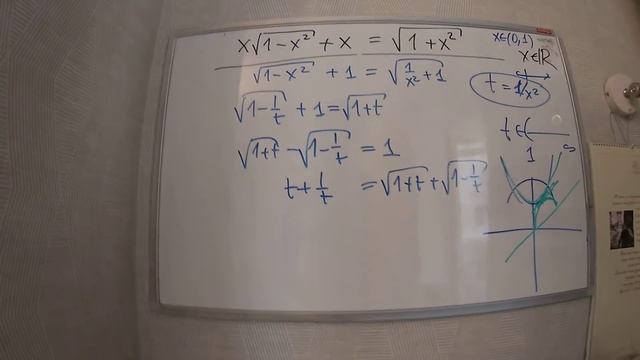 x√(1-x²) + x = √(1+x²)
x∈(0,1)
x∈ℝ
√(1-x²) + 1 = √(1/x² + 1)
t = 1/x²
√(1-1/t) + 1 = √(1+t)
t∈(
1 ∞
√(1+t) - √(1-1/t) = 1
t + 1/t = √(1+t) + √(1-1/t)